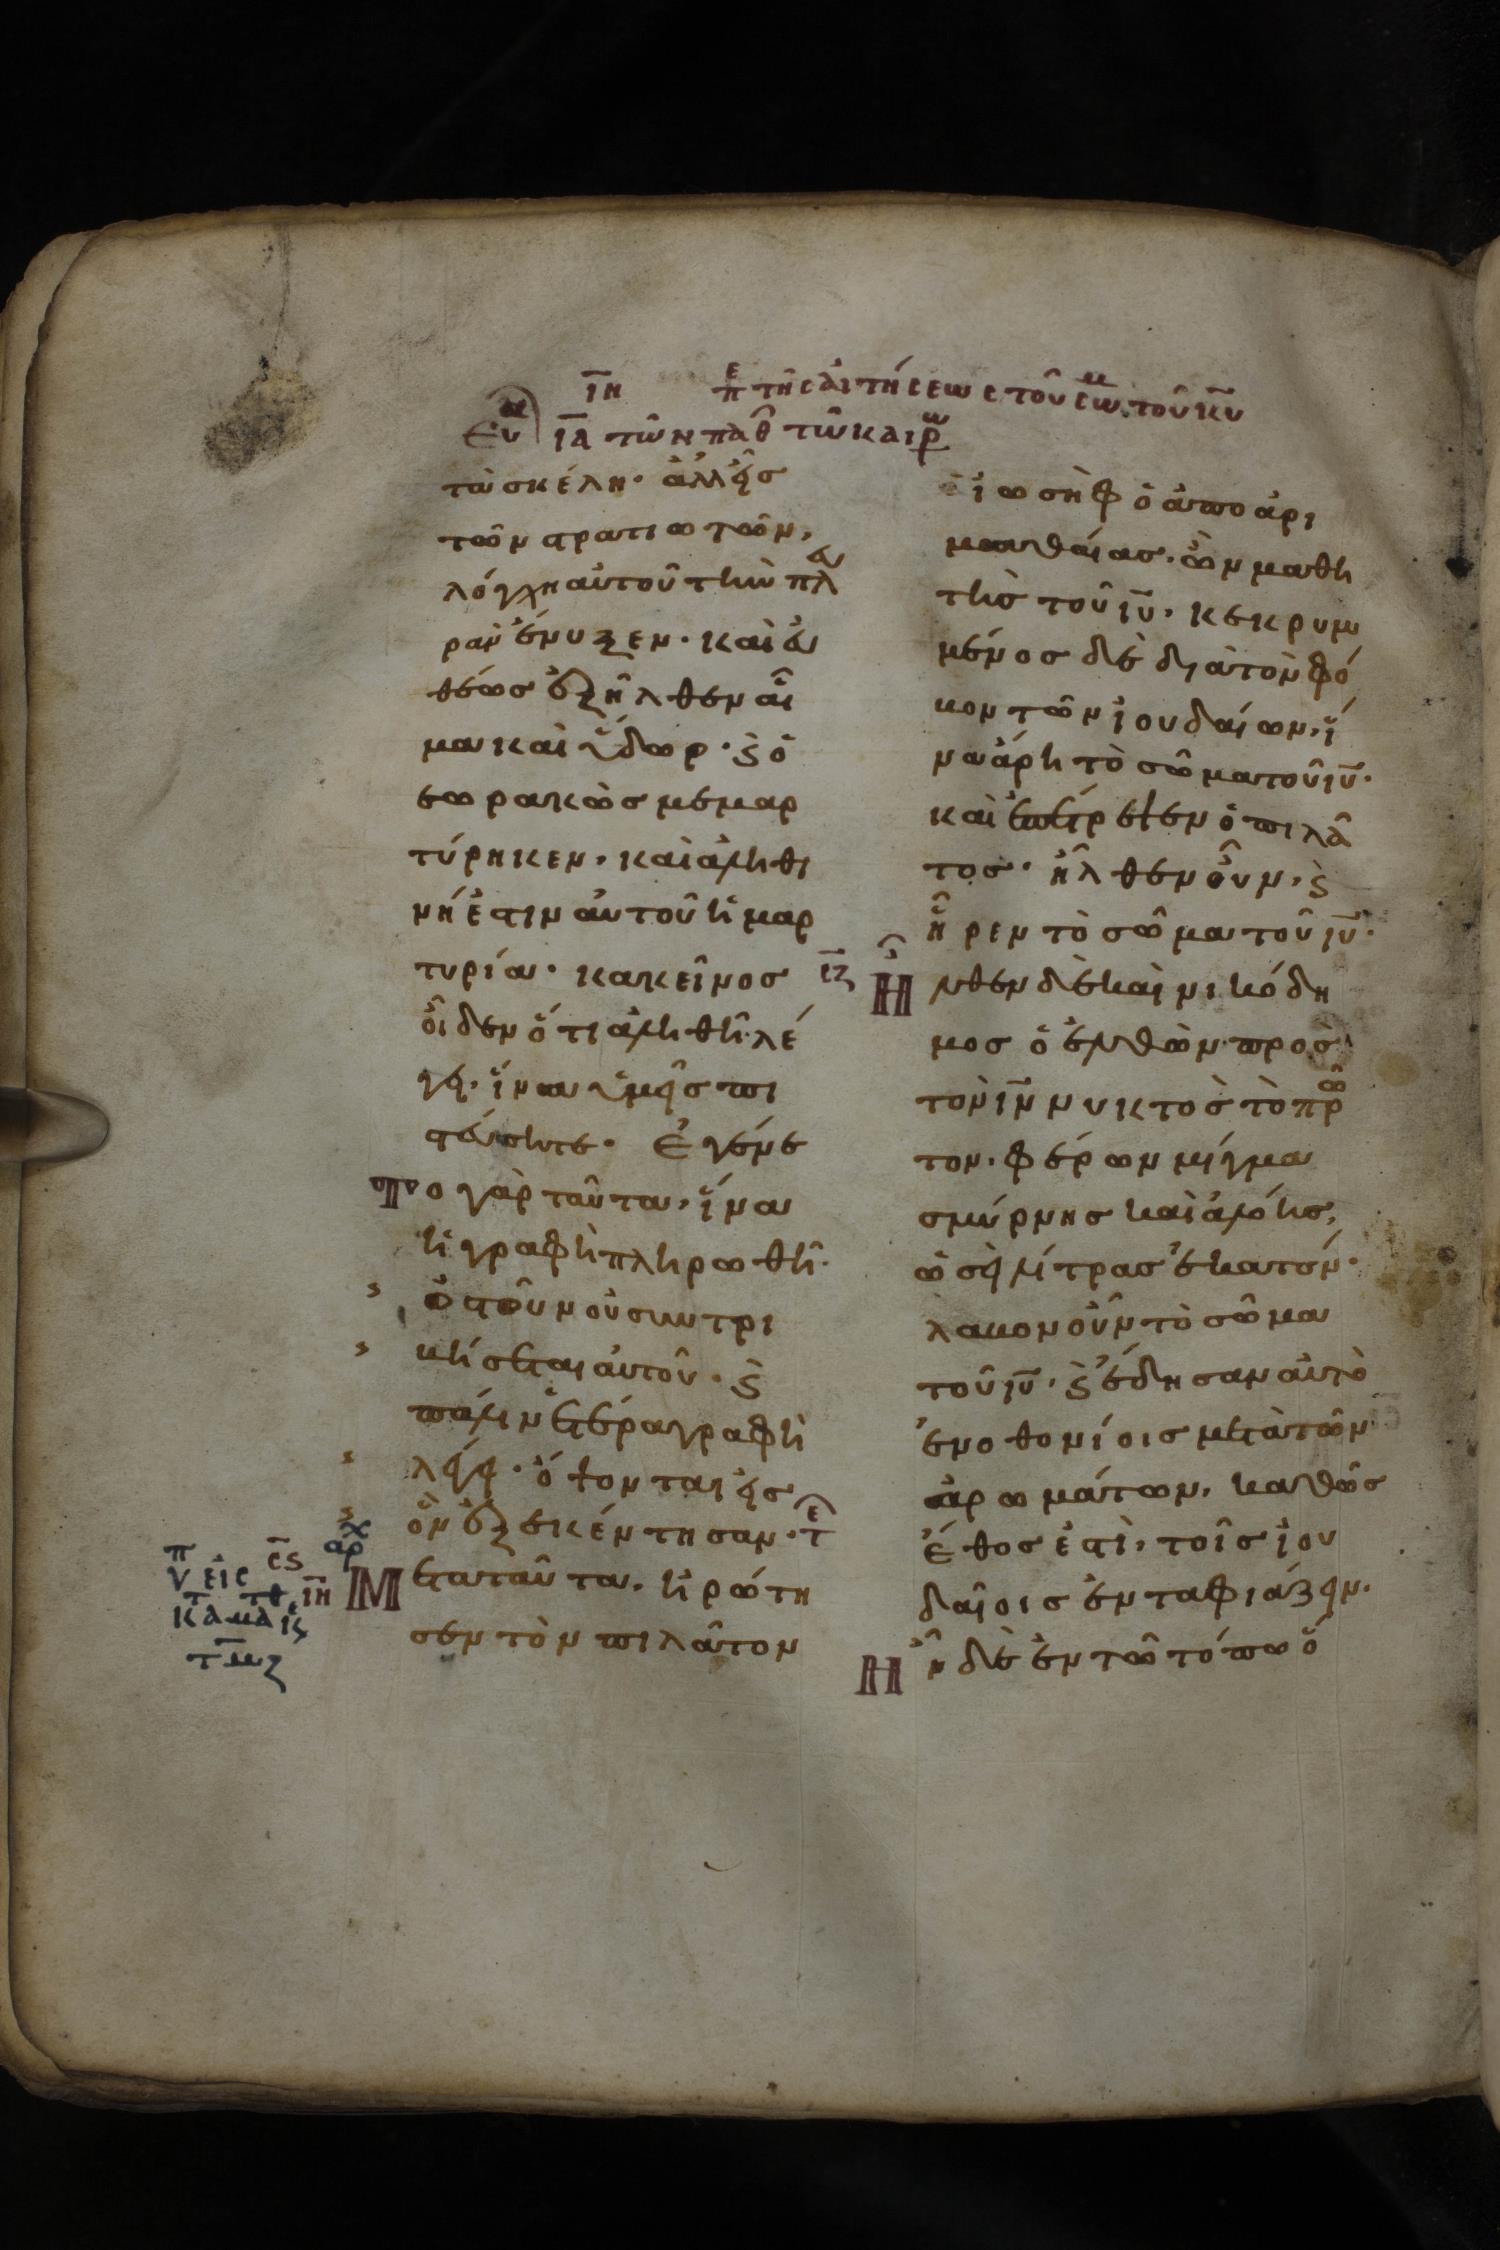 ιη πε της αιτήσεως τοῦ σωμ τοῦ κυ
Ευα ια τῶν παθ τῶ καιρω
τὰ σκέλη· ἀλλ εἷς
τῶν στρατιωτῶν,
λόγχη αὐτοῦ τὴν πλευ
ρὰν ἔνυξεν· καὶ εὐ
θέως ἐξῆλθεν αἷ
μα καὶ ὕδωρ· ϗ ὁ
εωρακὼς μεμαρ
τύρηκεν, καὶ ἀληθι
νή ἐστιν αὐτοῦ ἡ μαρ
τυρία· κακεῖνος
οἶδεν ὅτι ἀληθῆ λέ
γει· ἵνα ὑμεῖς πι
στεύσητε· Ἐγένε
το γὰρ ταῦτα, ἵνα
ἡ γραφὴ πληρωθῆ·
ὀστοῦν οὐ συντρι
βήσεται αὐτοῦ· ϗ
πάλιν ἑτέρα γραφὴ
λέγει· ὄψονται εἰς
ὃν ἐξεκέντησαν· τε
αρχ
Μετὰ ταῦτα, ἠρώτη
σεν τὸν πιλᾶτον
σς
ιη
ὁ ἰωσὴφ ὁ ἀπο ἀρι
μαθαίας· ὢν μαθη
τὴς τοῦ ιυ, κεκρυμ
μένος δὲ διὰ τὸν φό
βον τῶν ἰουδαίων, ἵ
να ἄρη τὸ σῶμα τοῦ ιυ·
καὶ ἐπέτρεψεν ὁ πιλᾶ
τος· ἦλθεν οὖν, ϗ
ἦρεν τὸ σῶμα τοῦ ιυ·
σζ
Ἦλθεν δὲ καὶ νικόδη
μος ὁ ἐλθὼν πρὸς
τὸν ιν νυκτὸς τὸ πρῶ
τον· φέρων μίγμα
σμύρνης καὶ ἀλόης,
ὡσεὶ λίτρας ἑκατόν·
λαβον οὖν τὸ σῶμα
τοῦ ιυ· ϗ ἔδησαν αὐτὸ
ἐν οθονίοις μετὰ τῶν
ἀρωμάτων, καθὼς
ἔθος ἐστὶ, τοῖς ἰου
δαίοις ἐνταφιάζειν·
Ἦν δὲ ἐν τῶ τόπω ὅ